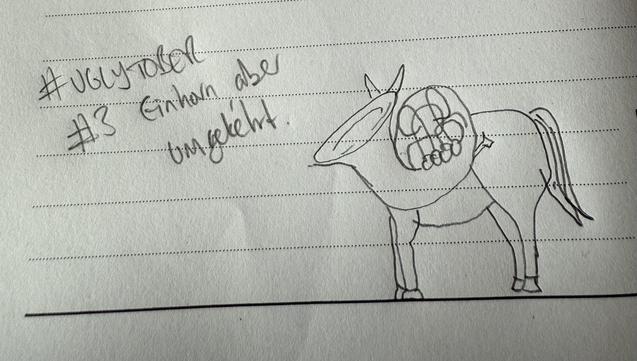 #UGLYTOBER
#3 Einhorn aber
umgekehrt.